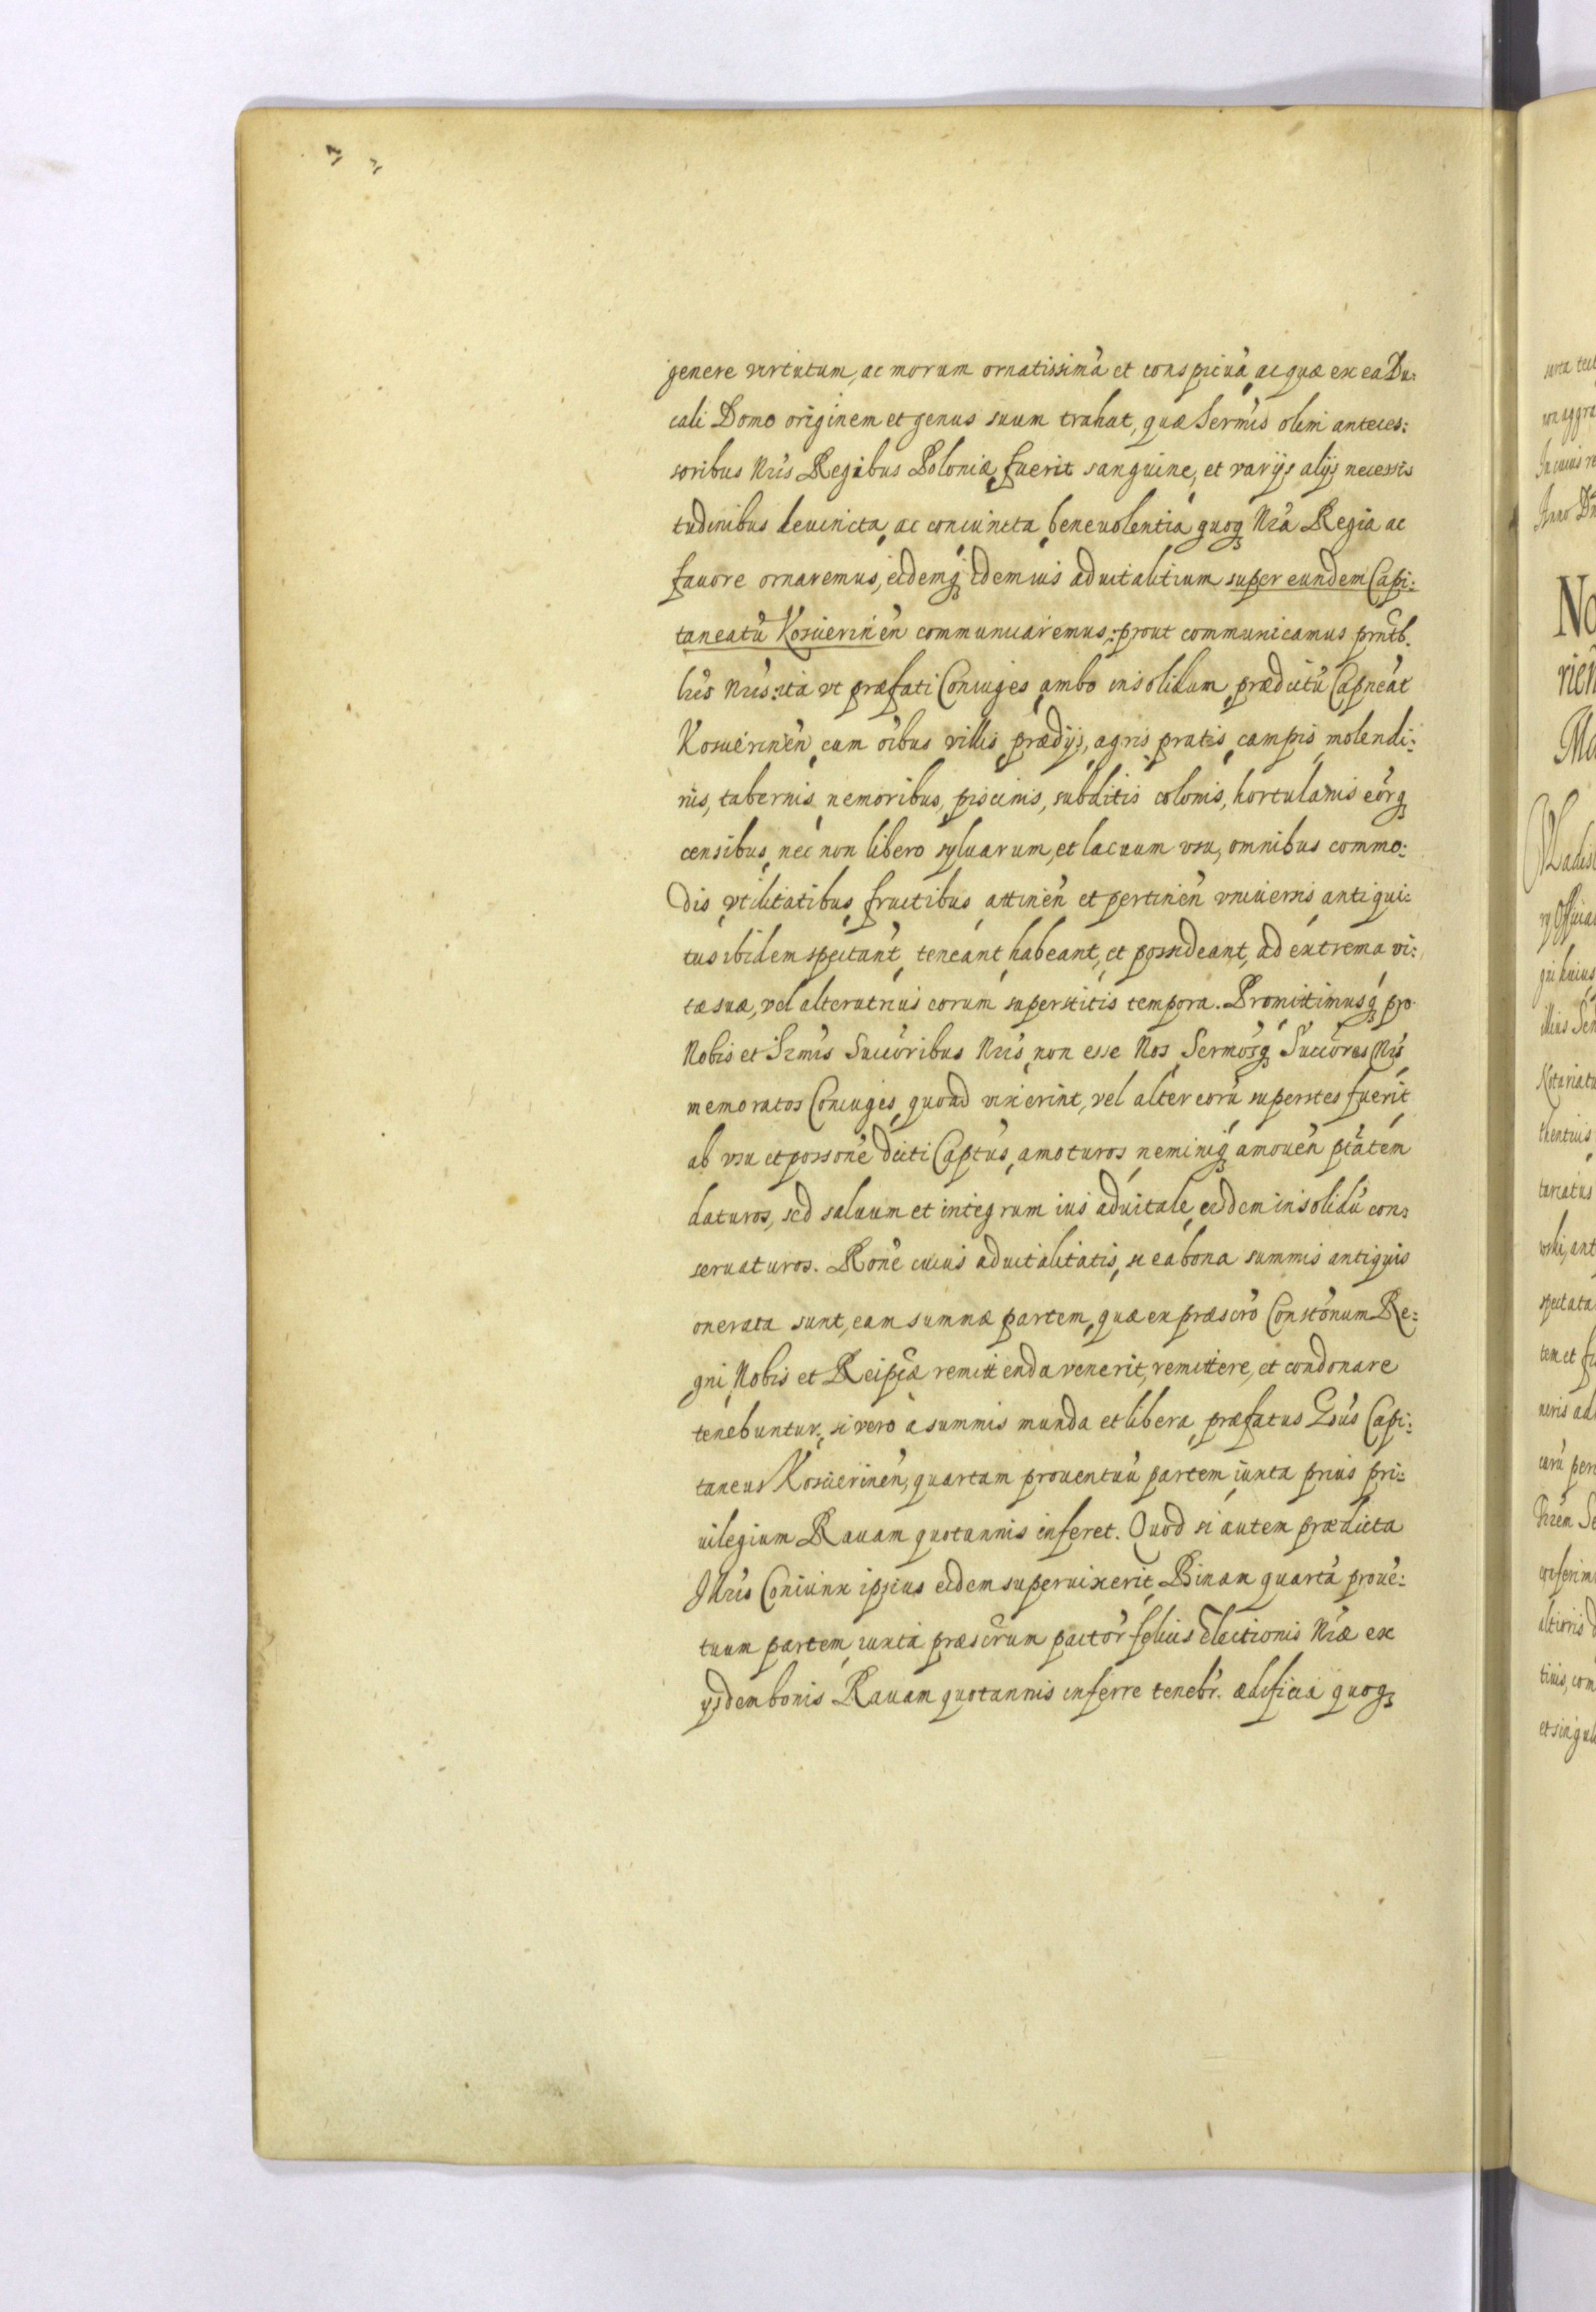 genere virtutum, ac morum ornatissimã et conspicuã, ac quæ ex ea Du:
cali Domo originem et genus suum trahat, quæ Sermis olim anteces:
soribus Nris Regibus Poloniæ, fuerit sanguine, et varijs alijs necessi
tudinibus deuincta, ac coniuncta, beneuolentia quoq Nra Regia ac
fauore ornaremus, eidemq idem ius aduitalitium super eundem Capi:
taneatũ Koscierinen̄ communicaremus, prout communicamus prntb.
lris Nris: ita vt præfati Coniuges, ambo insolidum, prædictũ Capneat
Koscierinen̄, cum oibus villis, prædijs, agris, pratis, campis, molendi:
nis, tabernis, nemoribus, piscinis, subditis colonis, hortulanis eorq
censibus, nec non libero syluarum, et lacuum vsu, omnibus commo:
dis, vtilitatibus, fructibus, attinen̄ et pertinen̄ vniuersis antiqui:
tus ibidem spectant, teneant, habeant, et possideant, ad extrema vi:
tæ suæ, vel alterutrius eorum superstitis tempora. Promittimusq pro
Nobis et Srmis Succoribus Nris, non esse Nos, Sermosq Succores Nros
memoratos Coniuges, quoad vixerint, vel alter eorũ superstes fuerit,
ab vsu et possone dicti Captus, amoturos, neminiq amouen̄ ptatem
daturos, sed saluum et integrum ius aduitale, eisdem insolidũ con:
seruaturos. Rone cuius aduitalitatis, si ea bona summis antiquis
onerata sunt, eam summæ partem, quæ ex præscro Constonum Re:
gni, Nobis et Reipcæ remittenda venerit, remittere, et condonare
tenebuntur, si vero à summis munda et libera, præfatus Gsus Capi:
taneus Koscierinen̄, quartam prouentuũ partem, iuxta prius pri:
uilegium Rauam quotannis inferet. Quod si autem prædicta
Illris Coniunx ipsius eidem superuixerit, Binam quartã prouẽ:
tuum partem, iuxta præscrum pactor felicis Electionis Nræ ex
ijsdem bonis Rauam quotannis inferre tenebr. ædificia quoq